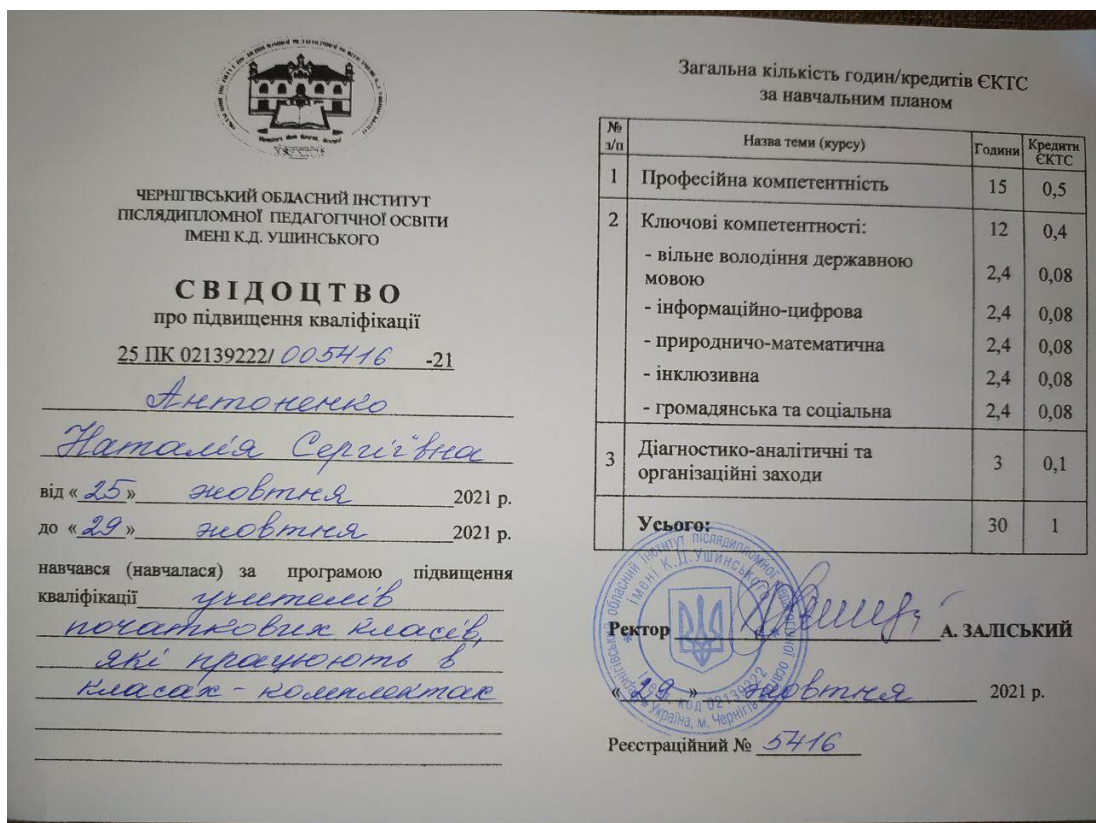 ЧЕРНІГІВСЬКИЙ ОБЛАСНИЙ ІНСТИТУТ
ПІСЛЯДИПЛОМНОЇ ПЕДАГОГІЧНОЇ ОСВІТИ
ІМЕНІ К.Д. УШИНСЬКОГО
СВІДОЦТВО
про підвищення кваліфікації
25 ПК 02139222/ 005416 -21
Антоненко
Наталія Сергіївна
від « 25 » жовтня 2021 р.
до « 29 » жовтня 2021 р.
навчався (навчалася) за програмою підвищення
кваліфікації учителів
початкових класів,
які працюють в
класах - комплектах
Загальна кількість годин/кредитів ЄКТС
за навчальним планом
№ з/п Назва теми (курсу) Години Кредити ЄКТС
1 Професійна компетентність 15 0,5
2 Ключові компетентності: 12 0,4
- вільне володіння державною
мовою 2,4 0,08
- інформаційно-цифрова 2,4 0,08
- природничо-математична 2,4 0,08
- інклюзивна 2,4 0,08
- громадянська та соціальна 2,4 0,08
3 Діагностико-аналітичні та
організаційні заходи 3 0,1
Усього: 30 1
Чернігівський обласний інститут післядипломної педагогічної освіти
імені К.Д.Ушинського
код 02139222
Україна, м. Чернігів
Ректор А. ЗАЛІСЬКИЙ
« 29 » жовтня 2021 р.
Реєстраційний № 5416